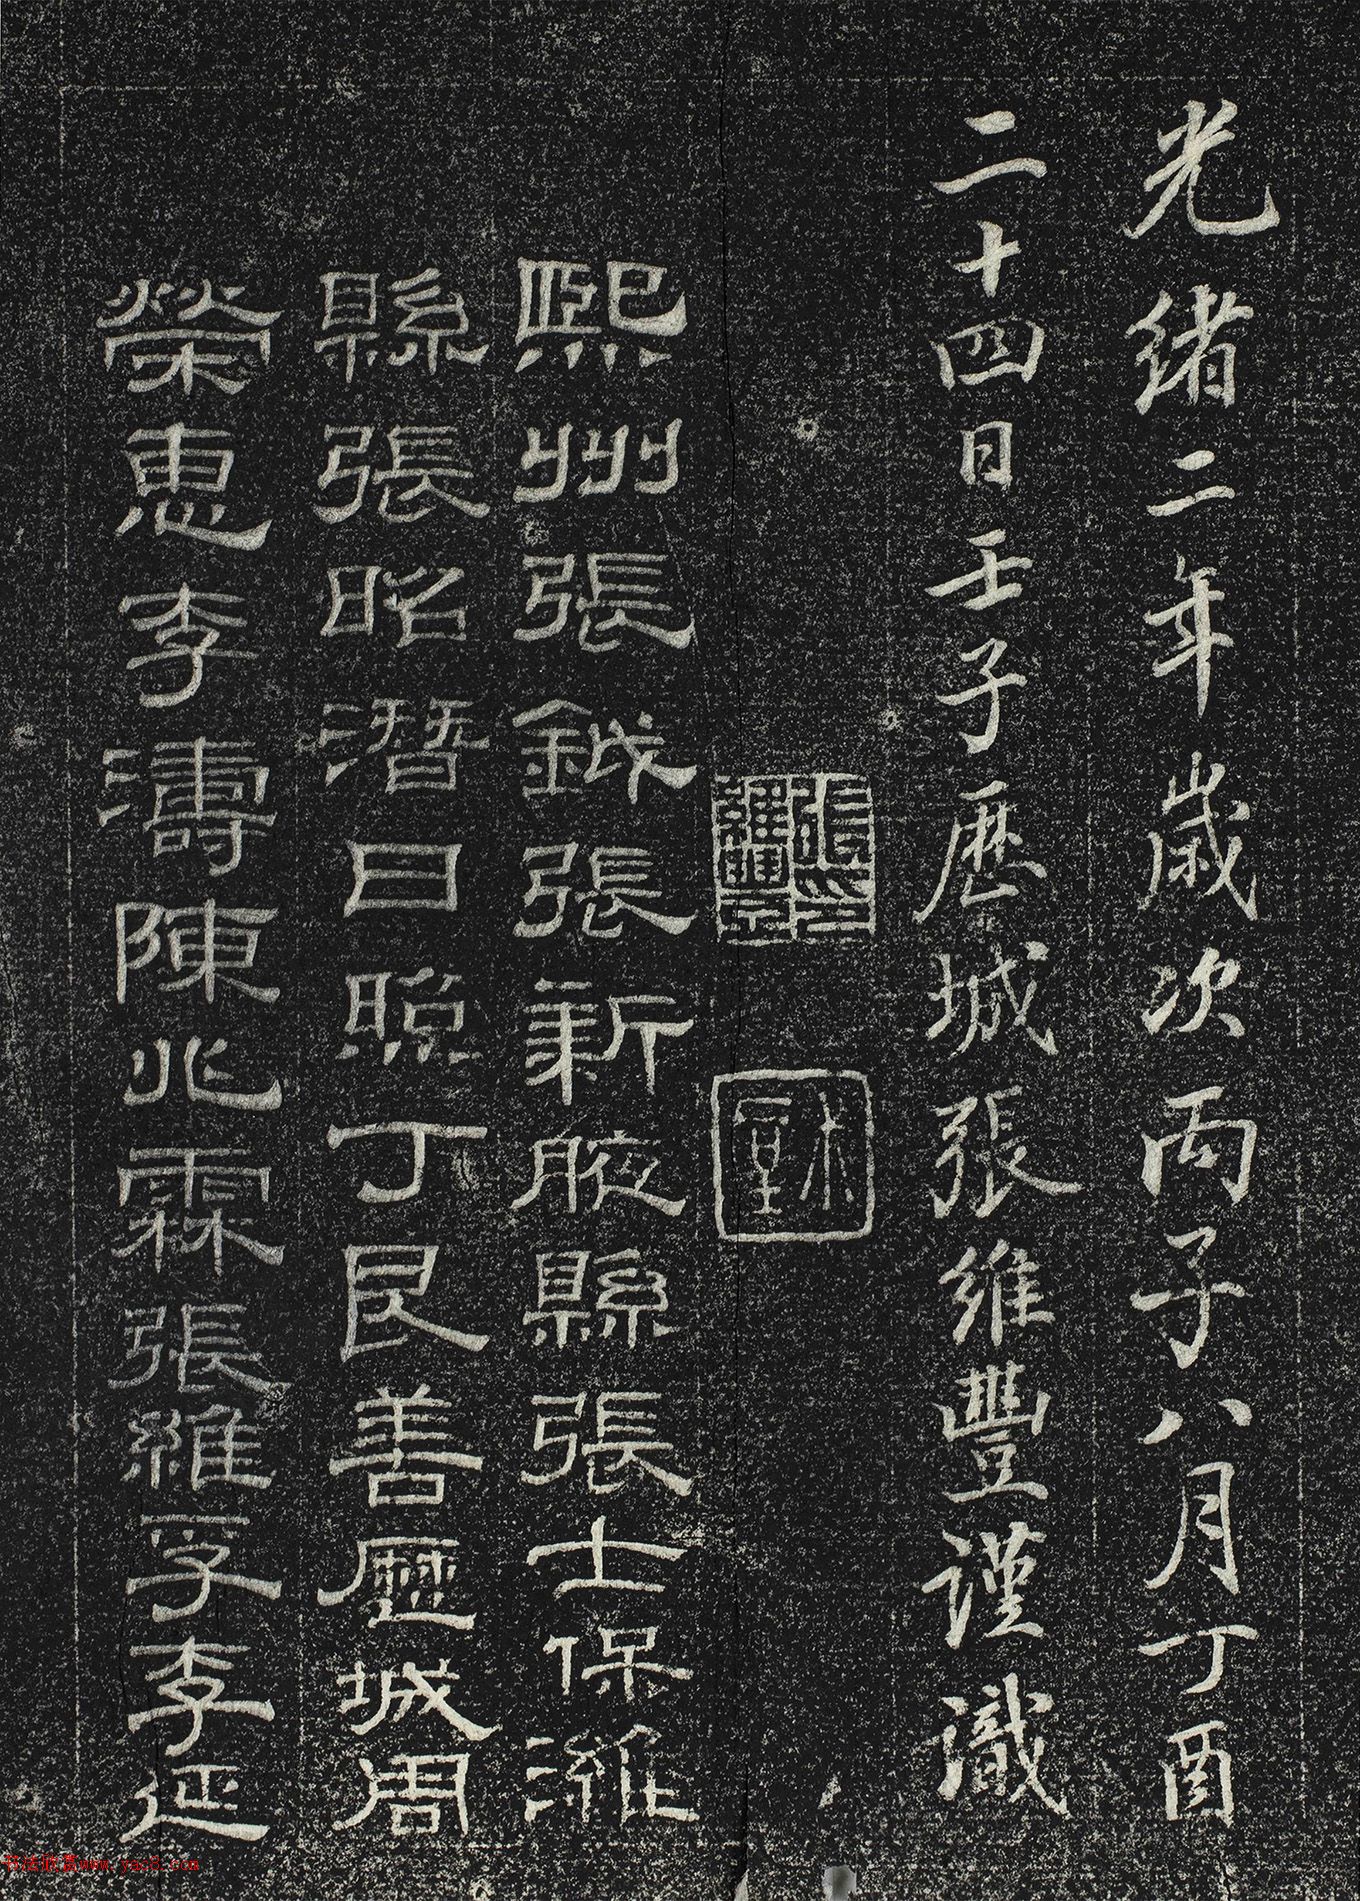 光緒二年歲次丙子八月丁酉
二十四日壬子歷城張維豐謹識
熙州張鉞張新腋縣張士保濰
縣張昭潛日照丁艮善歷城周
榮惠李濤陳兆霖張維孚李延
书法收藏www.yac8.com